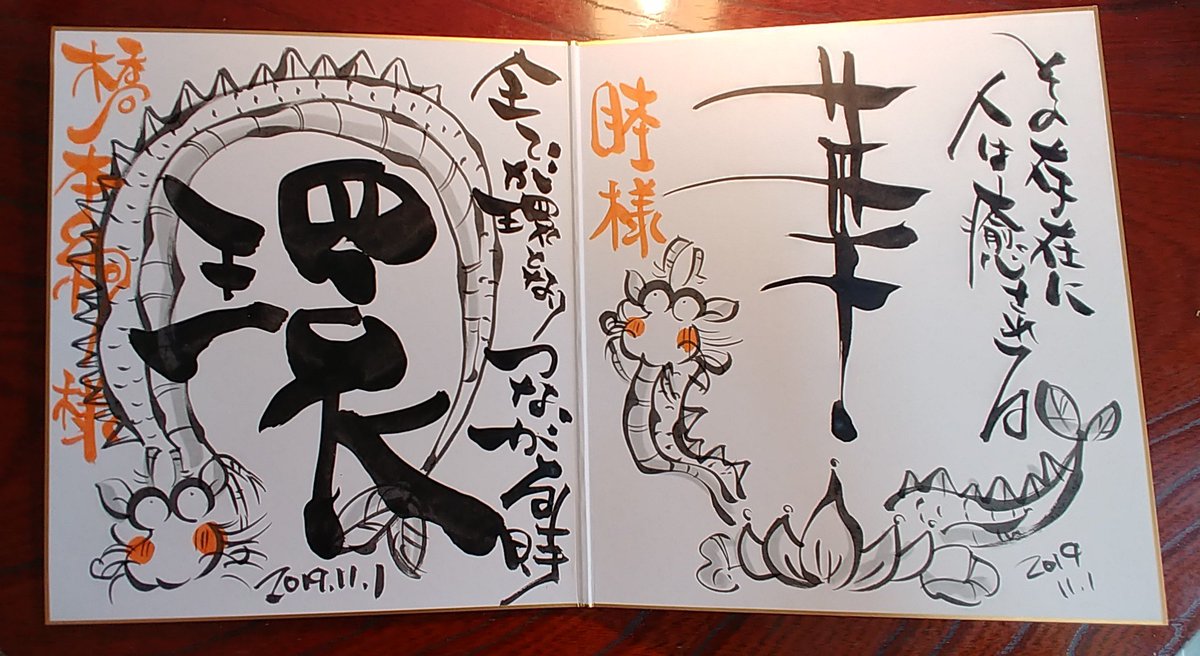 その存在に
人は癒される
華
睦様
2019
11.1
全てが環となり
つながる時
環
橋本 様
2019.11.1